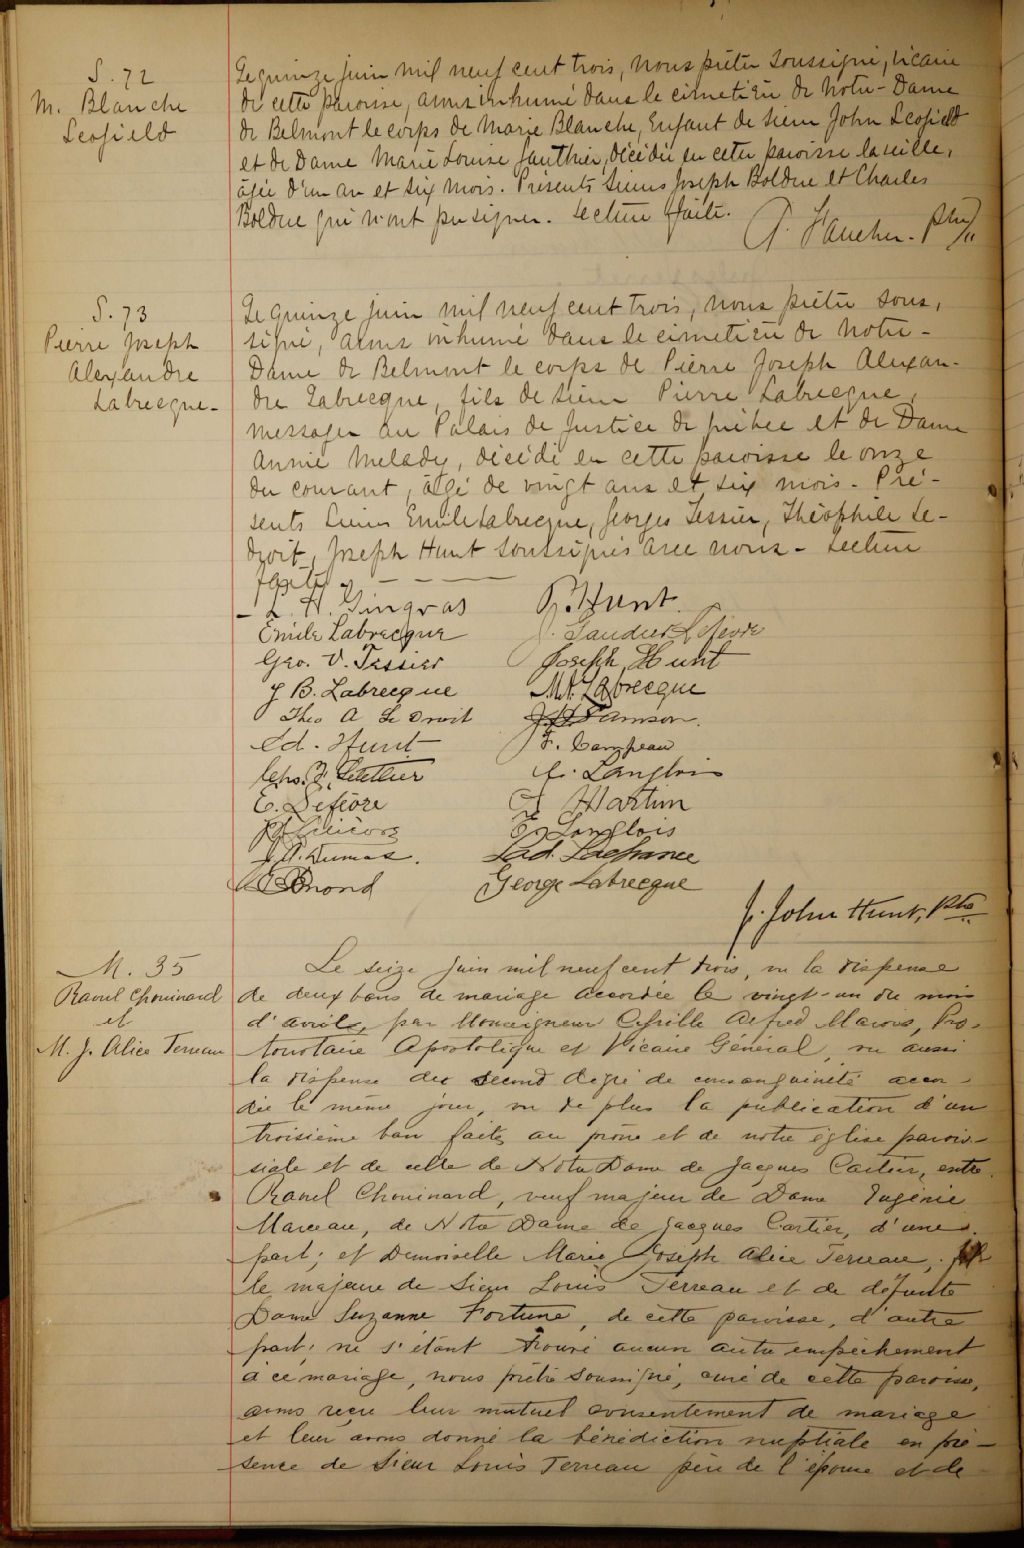 S. 72
M. Blanche
Scofield
Le quinze juin mil neuf cent trois, nous prêtre soussigné, vicaire
de cette paroisse, avons inhumé dans le cimetière de Notre-Dame
de Belmont le corps de Marie Blanche, Enfant de Sieur John Scofield
et de Dame Marie Louise Gauthier, décédée en cette paroisse la veille,
âgée d'un an et six mois. Présents Sieurs Joseph Bolduc et Charles
Bolduc qui n'ont pu signer. Lecture faite.
Faucher. Ptre
S. 73
Pierre Joseph
Alexandre
Labrecque-
Le quinze juin mil neuf cent trois, nous prêtre sous,
signé, avons inhumé dans le cimetière de Notre-
Dame de Belmont le corps de Pierre Joseph Alexan-
dre Labrecque, fils de Sieur Pierre Labrecque,
messager au Palais de Justice de Québec et de Dame
Annie Melady, décédé en cette paroisse le onze
du courant, âgé de vingt ans et six mois. Pré-
sents Sieurs Emile Labrecque, Georges Tessier, Théophile Le-
droit, Joseph Hunt soussignés avec nous. Lecture
faite
L. H. Gingras
P. Hunt.
Emile Labrecque
J. Lefevre
Geo. V. Tessier
Joseph Hunt
J B. Labrecque
M.A. Labrecque
Theo A Le Droit
Samson.
Ed. Hunt
F. Campeau
Letellier
Langlois
E. Lefevre
Martin
Langlois
J. A. Dumas.
Lad. Lachance
Emond
George Labrecque
J. John Hunt, Ptre
M. 35
Raoul Chouinard
et
M. J. Alice Terreau
Le seize juin mil neuf cent trois, vu la dispense
de deux bans de mariage accordée le vingt-un du mois
d'avril, par Monseigneur Cyrille Alfred Marois, Pro-
tonotaire Apostolique et Vicaire Général, vu aussi
la dispense du second degré de consanguinité accor-
dée le même jour, vu de plus la publication d'un
troisième ban faite au prône et de notre église parois-
siale et de celle de Notre Dame de Jacques Cartier, entre
Raoul Chouinard, veuf majeur de Dame Eugénie
Marceau, de Notre Dame de Jacques Cartier, d'une
part; et Demoiselle Marie Joseph Alice Terreau, fil
le majeure de Sieur Louis Terreau et de défunte
Dame Suzanne Fortune, de cette paroisse, d'autre
part; ne s'étant trouvé aucun autre empêchement
à ce mariage, nous prêtre soussigné, curé de cette paroisse,
avons reçu leur mutuel consentement de mariage
et leur avons donné la bénédiction nuptiale en pré-
sence de Sieur Louis Terreau père de l'épouse et de